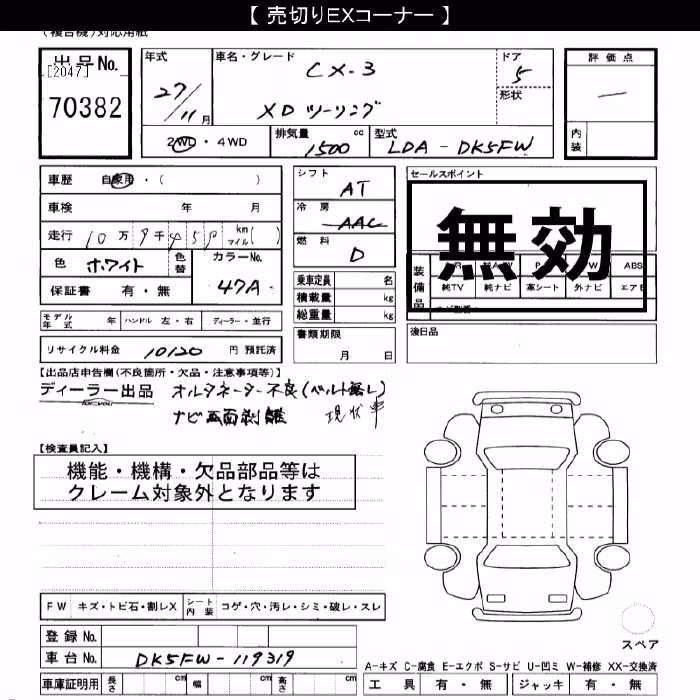 【 売切りEXコーナー 】
(複合機)対応用紙
出品No.
[2047]
70382
年式
27/11月
車名・グレード
CX-3
XDツーリング
ドア
5
形状
評価点
—
内装
2WD・4WD
排気量 1500 cc
型式 LDA-DK5FW
車歴 自家用・( )
車検 年 月
走行 10万9千450 km マイル( )
色 ホワイト
色替
カラーNo.
47A
保証書 有・無
モデル年式 年 ハンドル 左・右 ディーラー・並行
リサイクル料金 10120 円 預託済
シフト AT
冷房 AAC
燃料 D
乗車定員 名
積載量 kg
総重量 kg
書類期限
月 日
セールスポイント
無効
装備品
ABS
純TV 純ナビ 革シート 外ナビ エアB
後日品
【出品店申告欄(不良箇所・欠品・注意事項等)】
ディーラー出品 オルタネーター不良(ベルト無し)
ナビ画面剥離 現状車
【検査員記入】
機能・機構・欠品部品等は
クレーム対象外となります
FW キズ・トビ石・割レX シート内装 コゲ・穴・汚レ・シミ・破レ・スレ
登録No.
車台No. DK5FW-119319
車庫証明用 長さ cm 幅 cm 高さ cm
スペア
A-キズ C-腐食 E-エクボ S-サビ U-凹ミ W-補修 XX-交換済
工具 有・無 ジャッキ 有・無